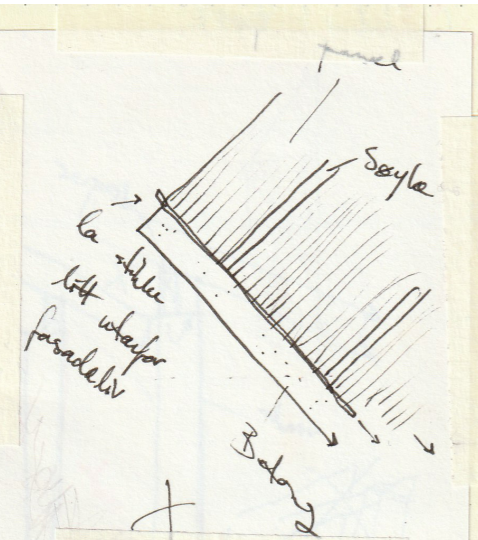 panel
Søyle
la stikke
litt utenfor
fasadeliv
Betong